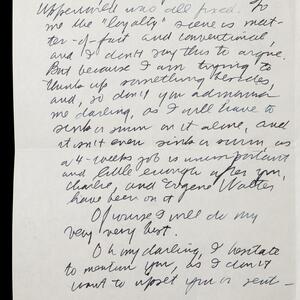 was all fixed. To
me the "loyalty" scene is mat-
ter-of-fact and conventional,
and I don't say this to argue.
But because I am trying to
think up something besides,
and, so don't you admonish
me darling, as I will have to
sink or swim on it alone, and
it isn't even sink or swim, as
a 4-weeks job is unimportant
and little enough after you,
Charlie, and Eugene Walter
have been on it
Of course I will do my
very very best.
Oh my darling, I hesitate
to mention you, as I don't
want to upset you or sent-